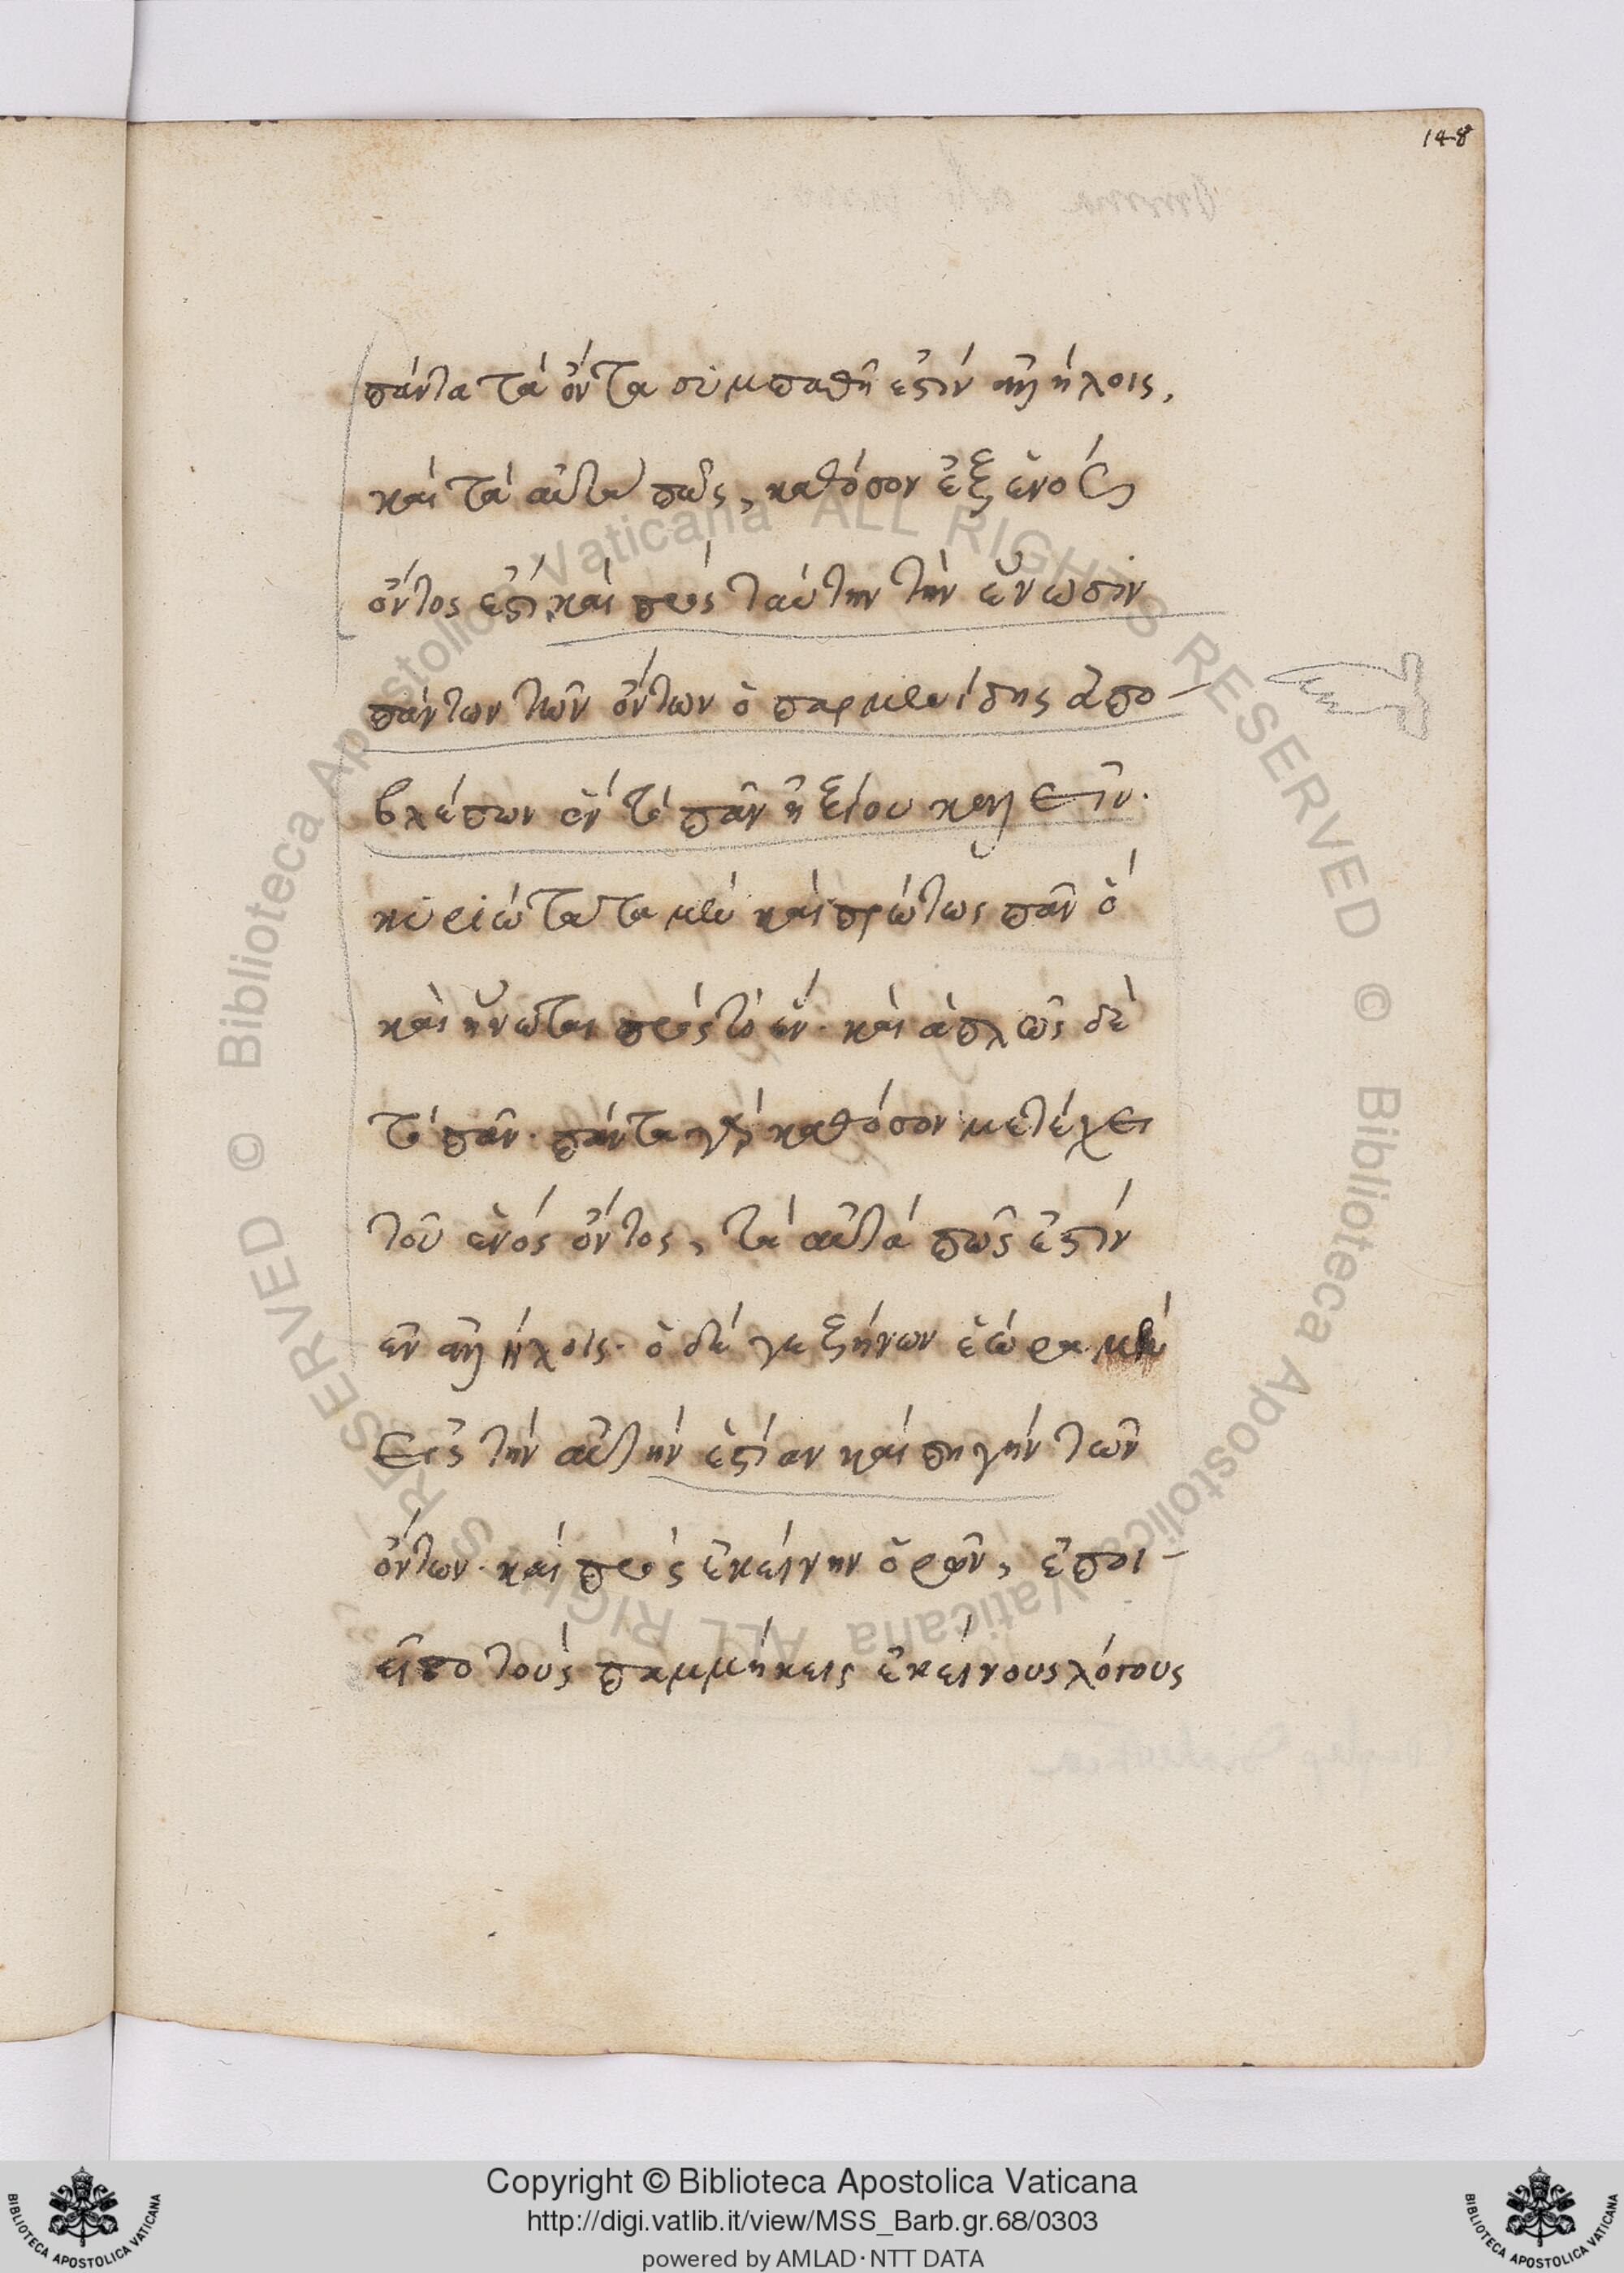 148
πάντα τὰ ὄντα συμπαθῆ ἐστὶν ἀλλήλοις,
καὶ τὰ αὐτὰ πῶς, καθόσον ἐξ ἑνὸς
ὄντος ἐστί. καὶ πρὸς ταύτην τὴν ἕνωσιν
πάντων τῶν ὄντων ὁ παρμενίδης ἀπο-
βλέπων ἓν τὸ πᾶν ἠξίου καλεῖν.
κυριώτατα μὲν καὶ πρώτως πᾶν ὃ
καὶ ἥνωται πρὸς τὸ ἕν. καὶ ἁπλῶς δὲ
τὸ πᾶν. πάντα γὰρ καθόσον μετέχει
τοῦ ἑνὸς ὄντος, τὰ αὐτὰ πῶς ἐστὶν
ἐν ἀλλήλοις. ὁ δέ γε ζήνων ἑώρα μὲν
εἰς τὴν αὐτὴν ἑστίαν καὶ πηγὴν τῶν
ὄντων. καὶ πρὸς ἐκείνην ὁρῶν, ἐποι-
εῖτο τοὺς παμμήκεις ἐκείνους λόγους
Copyright © Biblioteca Apostolica Vaticana
http://digi.vatlib.it/view/MSS_Barb.gr.68/0303
powered by AMLAD·NTT DATA
BIBLIOTECA APOSTOLICA VATICANA
BIBLIOTECA APOSTOLICA VATICANA
© Biblioteca Apostolica Vaticana ALL RIGHTS RESERVED © Biblioteca Apostolica Vaticana ALL RIGHTS RESERVED